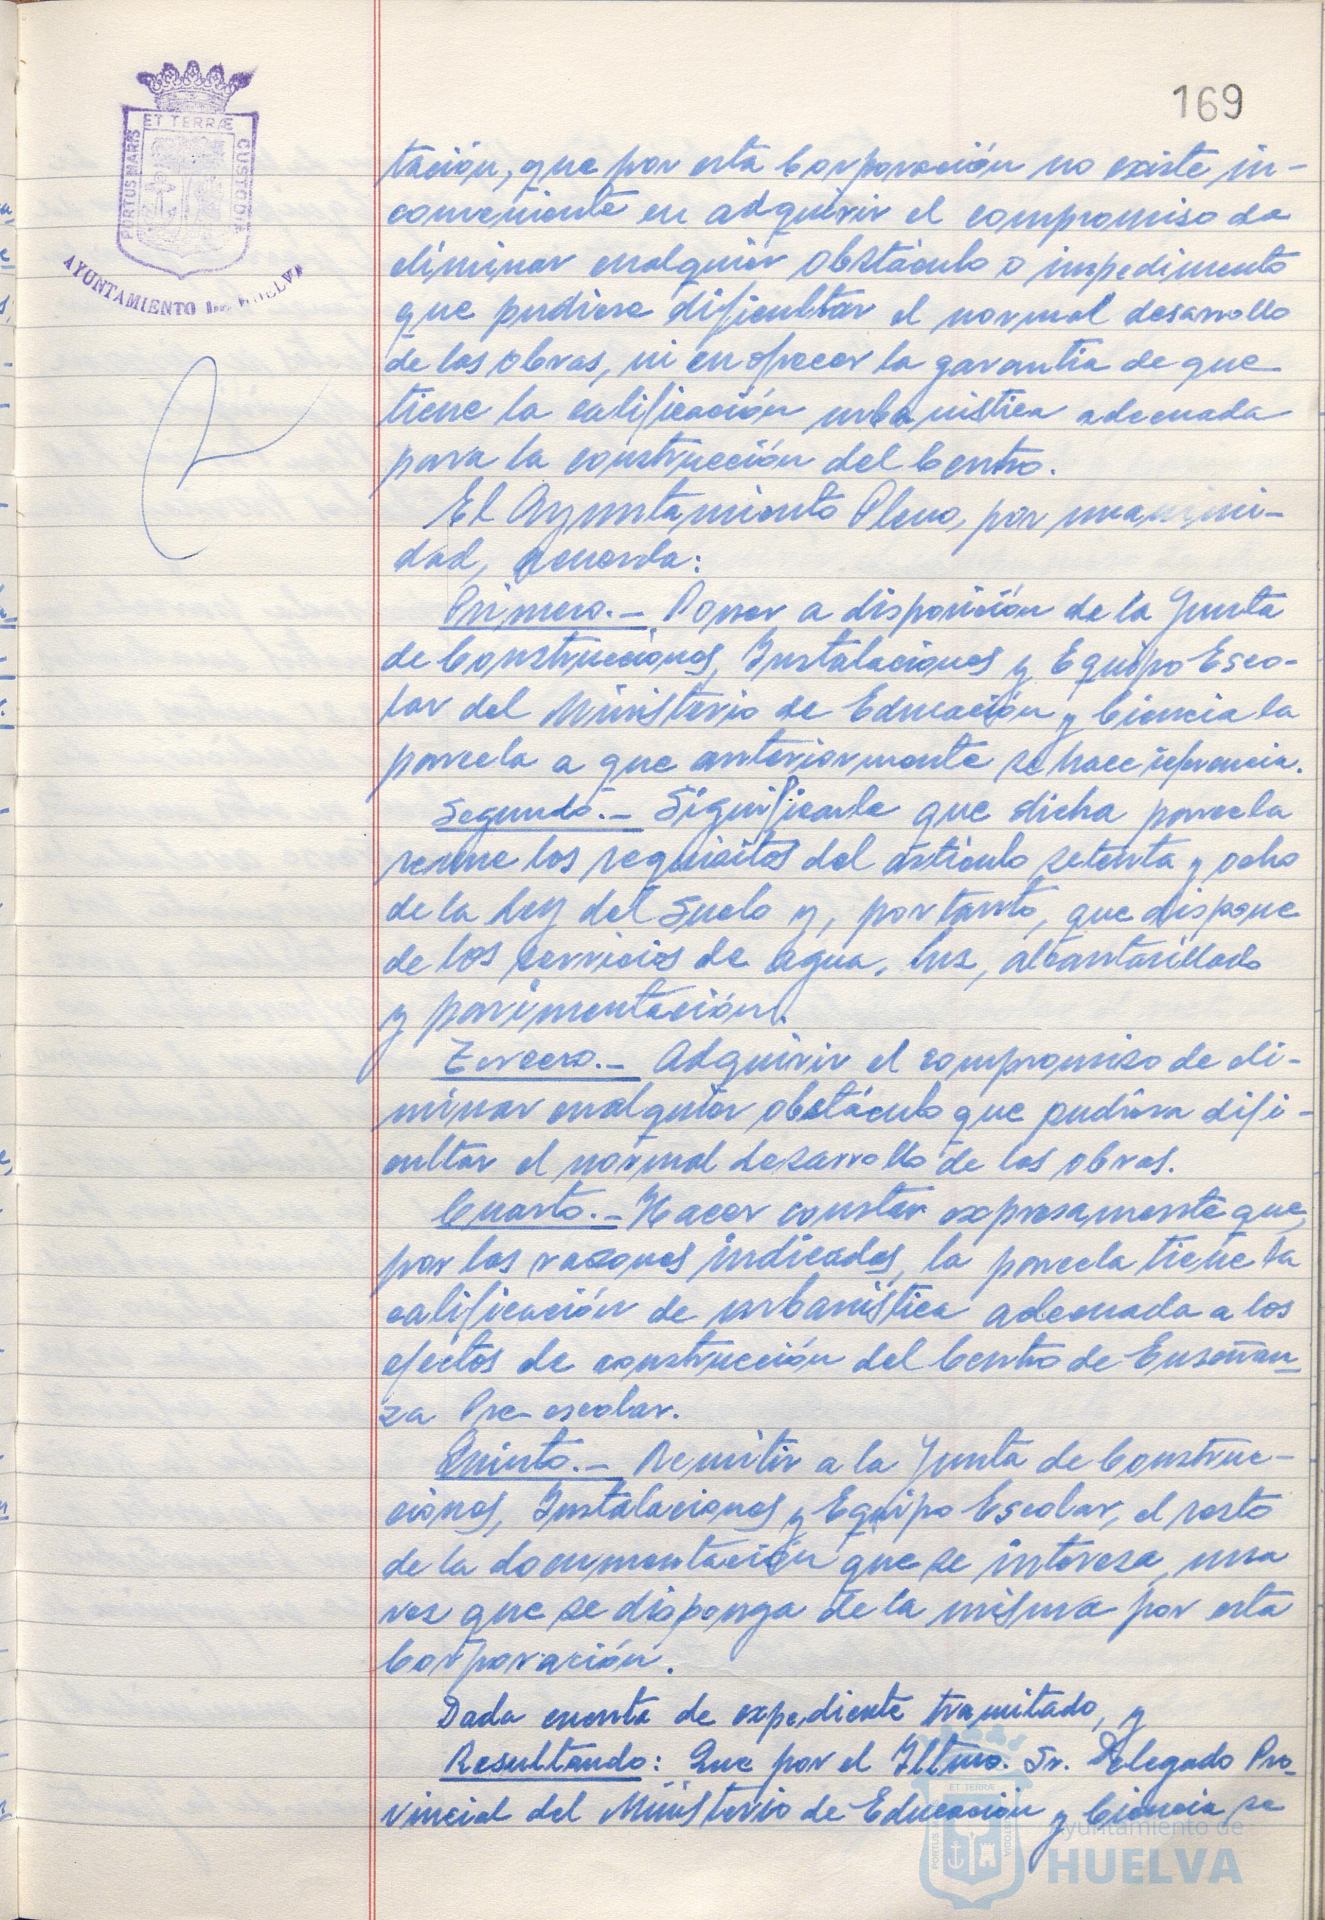 169
ET TERRÆ
PORTUS MARIS
CUSTODIA
AYUNTAMIENTO DE HUELVA
tación, que por esta Corporación no existe in-
conveniente en adquirir el compromiso de
eliminar cualquier obstáculo o impedimento
que pudiese dificultar el normal desarrollo
de las obras, ni en ofrecer la garantía de que
tiene la calificación urbanística adecuada
para la construcción del Centro.
El Ayuntamiento Pleno, por unanimi-
dad, acuerda:
Primero.- Poner a disposición de la Junta
de Construcciones, Instalaciones y Equipo Esco-
lar del Ministerio de Educación y Ciencia la
parcela a que anteriormente se hace referencia.
Segundo.- Significarle que dicha parcela
reune los requisitos del artículo setenta y ocho
de la Ley del Suelo y, por tanto, que dispone
de los servicios de agua, luz, alcantarillado
y pavimentación.
Tercero.- Adquirir el compromiso de eli-
minar cualquier obstáculo que pudiera difi-
cultar el normal desarrollo de las obras.
Cuarto.- Hacer constar expresamente que,
por las razones indicadas, la parcela tiene la
calificación de urbanística adecuada a los
efectos de construcción del Centro de Enseñan-
za Pre-escolar.
Quinto.- Remitir a la Junta de Construc-
ciones, Instalaciones y Equipo Escolar, el resto
de la documentación que se interesa, una
vez que se disponga de la misma por esta
Corporación.
Dada cuenta de expediente tramitado, y
Resultando: Que por el Iltmo. Sr. Delegado Pro-
vincial del Ministerio de Educación y Ciencia se
ET TERRÆ
PORTUS
CUSTODIA
Ayuntamiento de
HUELVA